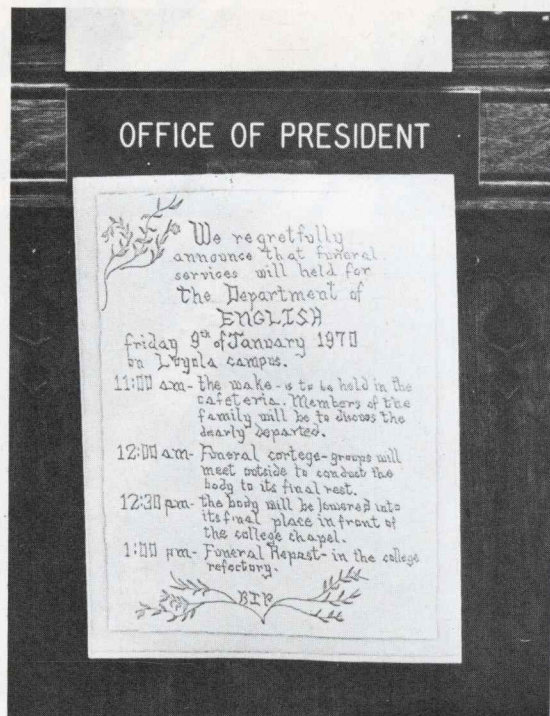 OFFICE OF PRESIDENT
We regretfully
announce that funeral
services will held for
the Department of
ENGLISH
friday 9th of January 1970
on Loyola campus.
11:00 am- the wake- is to be held in the
cafeteria. Members of the
family will be to discuss the
dearly departed.
12:00 am- Funeral cortege- groups will
meet outside to conduct the
body to its final rest.
12:30 pm- the body will be lowered into
its final place in front of
the college chapel.
1:00 pm- Funeral Repast- in the college
refectory.
RIP